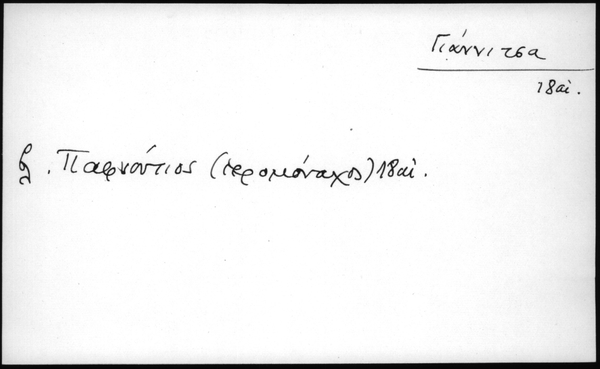 Γιάννιτσα
18 αἰ.
Παφνούτιος (ἱερομόναχος) 18 αἰ.